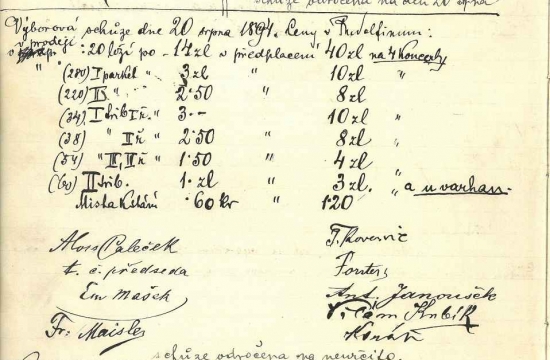 schůze odročena na den 20 srpna
Výborová schůze dne 20 srpna 1894. Ceny v Rudolfinum:
v prodeji: 20 loží po - 14 zl v předplacení 40 zl na 4 koncerty
" " (280) I parket " 3 zl " 10 zl "
(220) II " " 2·50 " 8 zl
(34) I trib I ř. " 3·- 10 zl "
(38) " II ř " 2·50 " 8 zl "
(54) " III, ř " 1·50 " 4 zl
(60) II trib. 1· zl " 3 zl. " a u varhan.
Místa k stání · 60 kr " 1·20
Alois Paleček
t. č. předseda
Em Mašek
Fr. Maisler
Forster
Ant. Janoušek
Vilém Kubík
schůze odročena na neurčito.